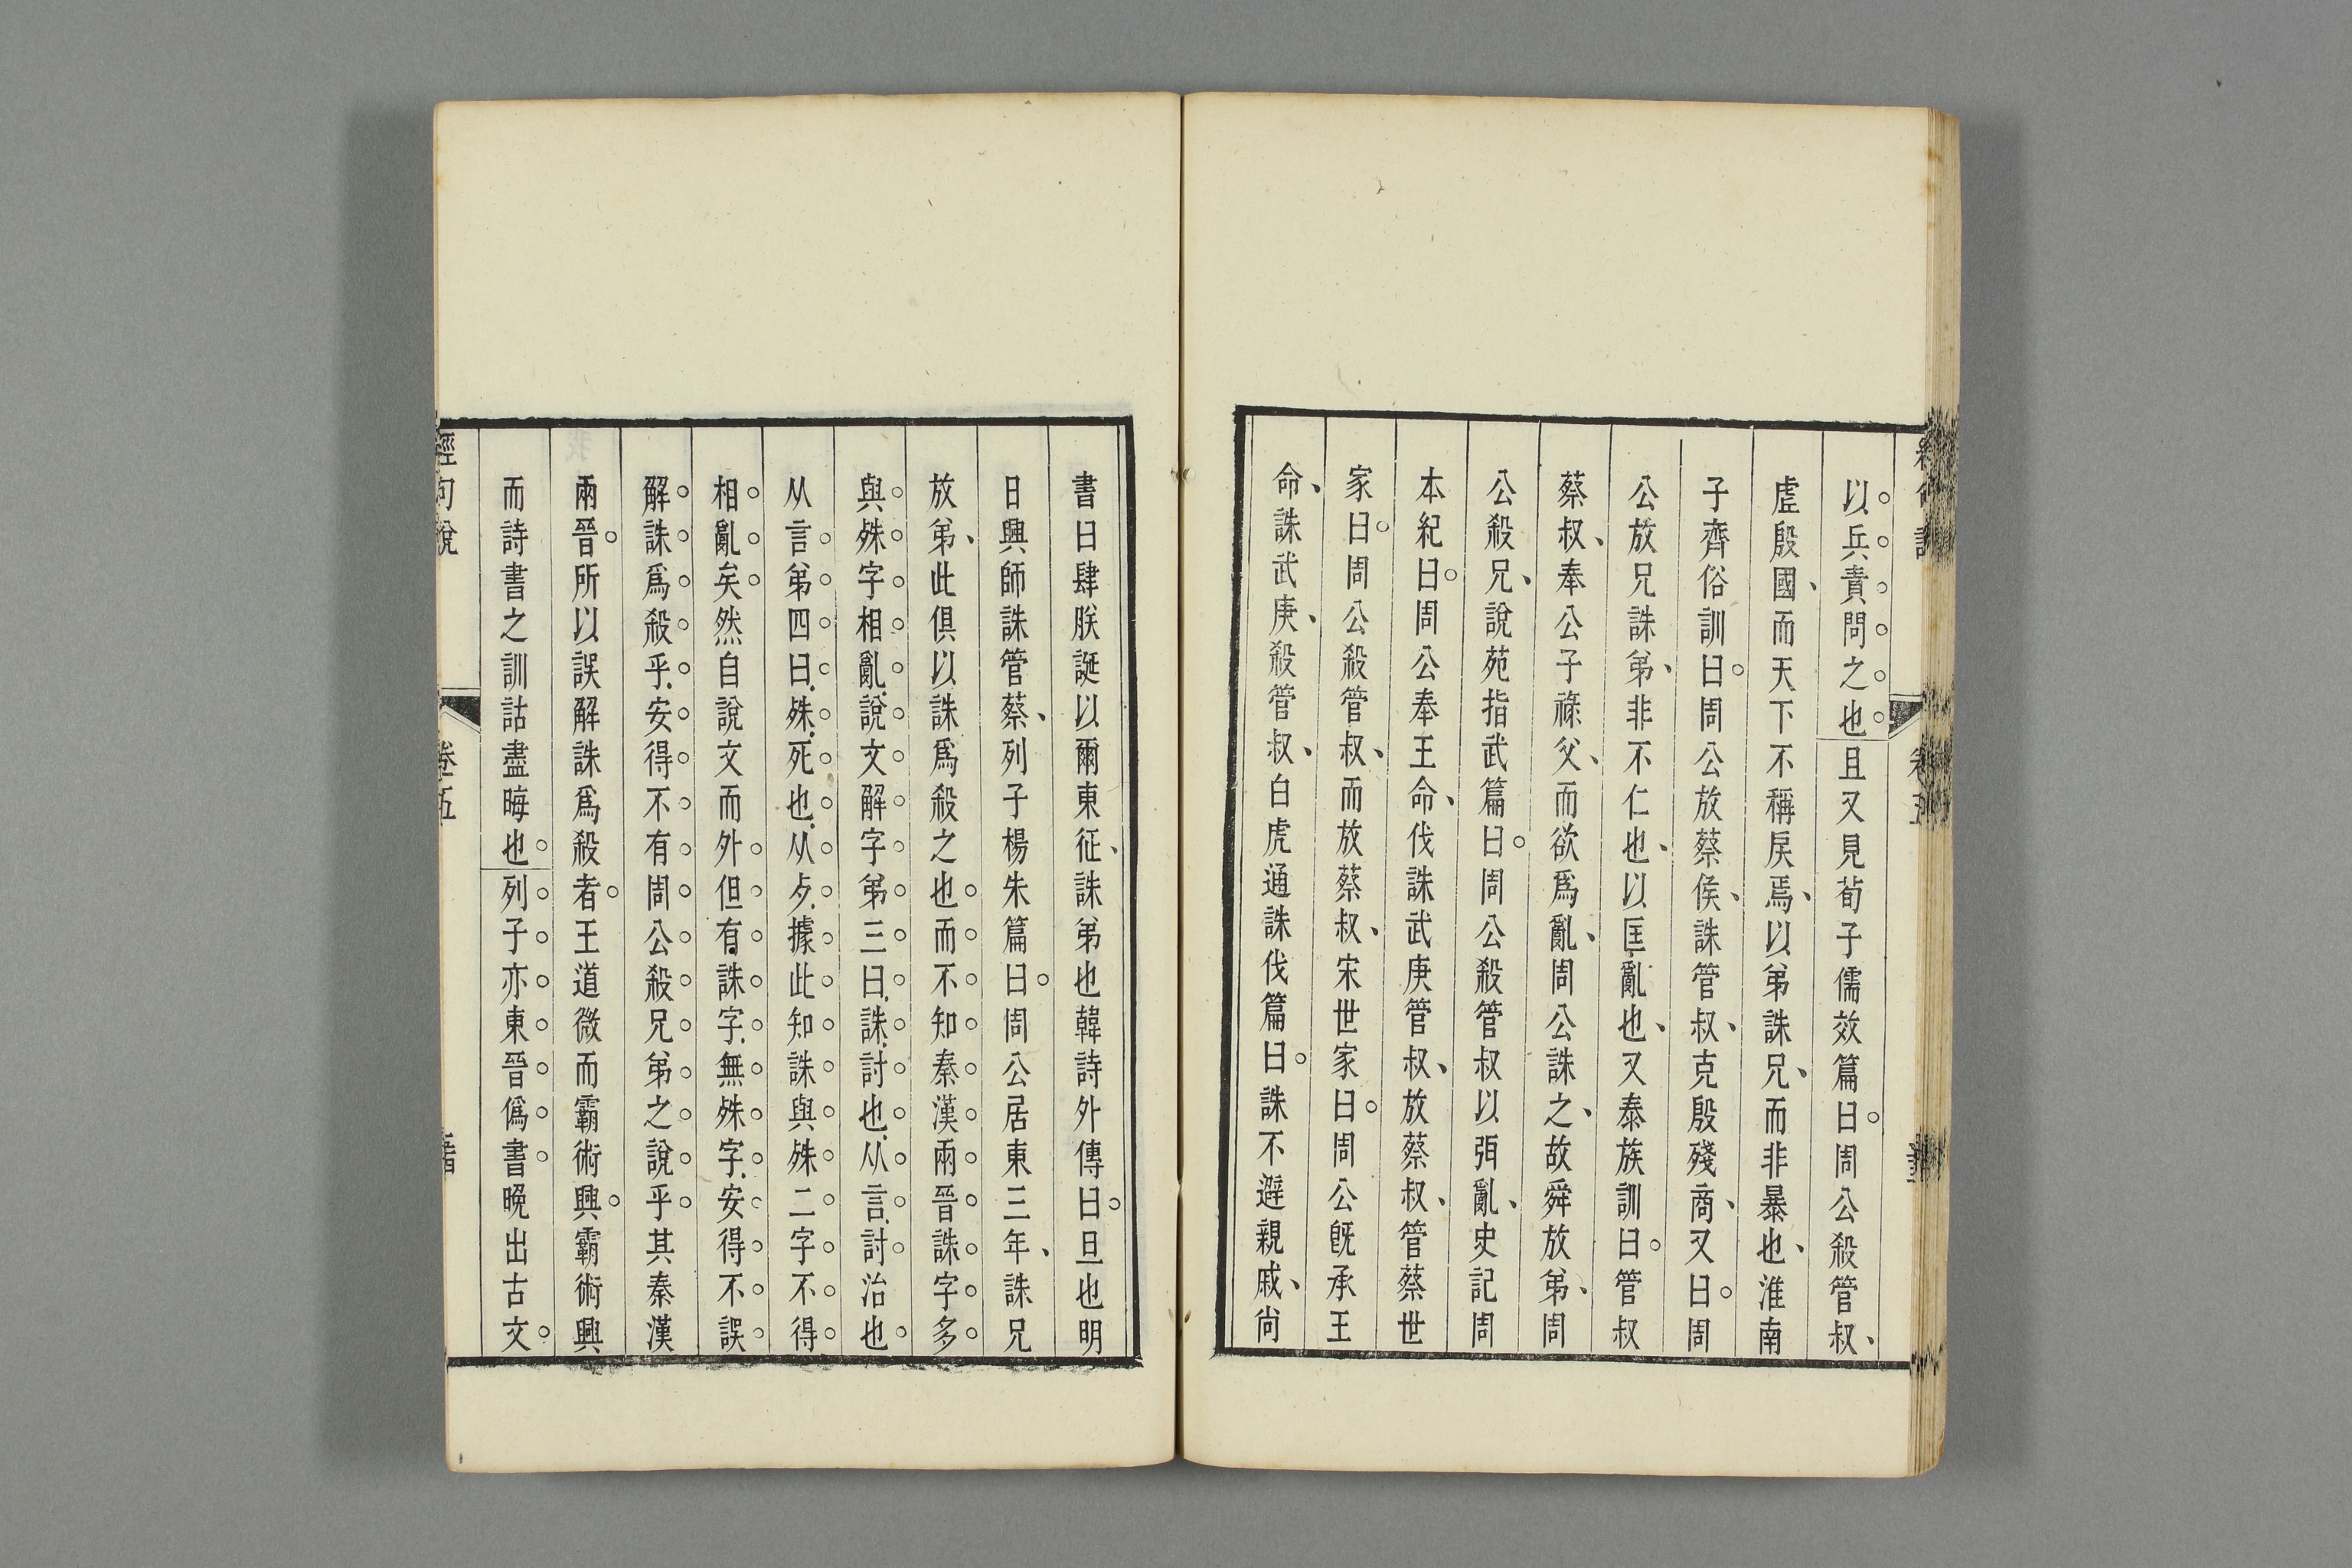 以兵責問之也且又見荀子儒效篇曰周公殺管叔
虗殷國而天下不稱戾焉以弟誅兄而非暴也淮南
子齊俗訓曰周公放蔡侯誅管叔克殷殘商又曰周
公放兄誅弟非不仁也以匡亂也又泰族訓曰管叔
蔡叔奉公子祿父而欲爲亂周公誅之故舜放弟周
公殺兄說苑指武篇曰周公殺管叔以弭亂史記周
本紀曰周公奉王命伐誅武庚管叔放蔡叔管蔡世
家曰周公殺管叔而放蔡叔宋世家曰周公旣承王
命誅武庚殺管叔白虎通誅伐篇曰誅不避親戚尙
書曰肆朕誕以爾東征誅弟也韓詩外傳曰旦也明
日興師誅管蔡列子楊朱篇曰周公居東三年誅兄
放弟此俱以誅爲殺之也而不知秦漢兩晉誅字多
與殊字相亂說文解字弟三曰誅討也从言討治也
从言弟四曰殊死也从歺據此知誅與殊二字不得
相亂矣然自說文而外但有誅字無殊字安得不誤
解誅爲殺乎安得不有周公殺兄弟之說乎其秦漢
兩晉所以誤解誅爲殺者王道微而霸術興霸術興
而詩書之訓詁盡晦也列子亦東晉僞書晚出古文
經句說
卷五